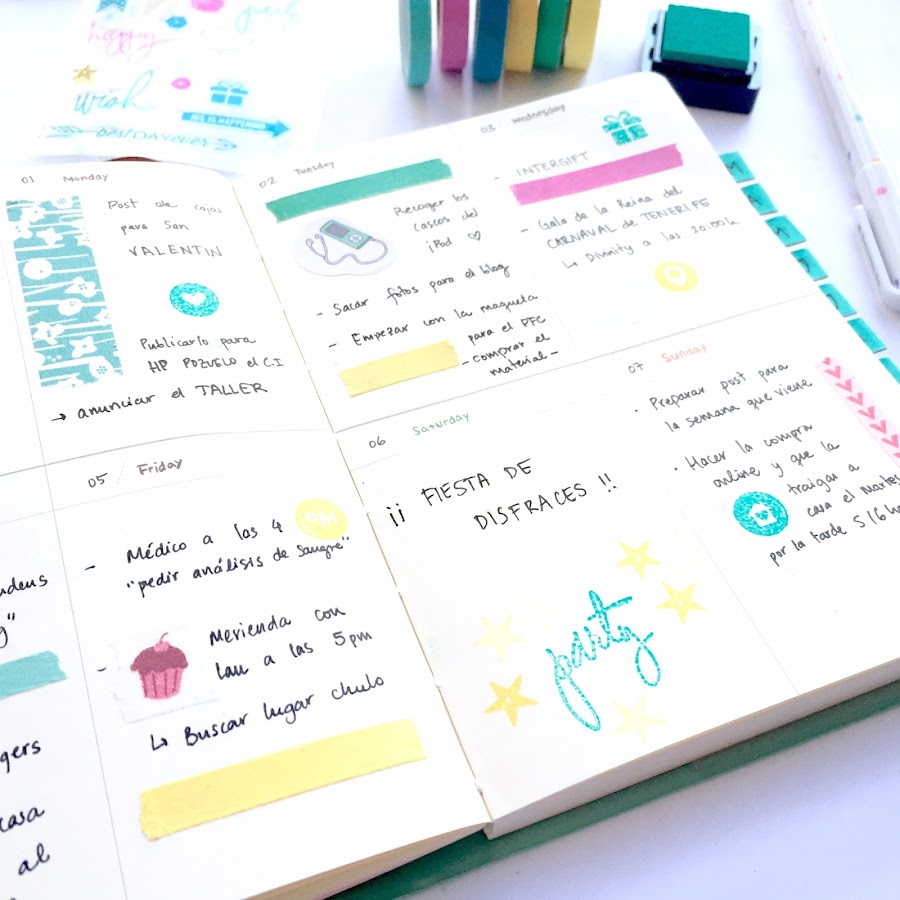 happy
wish
MG. IS HAPPENING
best DAY ever
01 Monday
Post de cajas
para San
VALENTIN
Publicarlo para
HP POZUELO el C.I
→ anunciar el TALLER
02 Tuesday
Recoger los
cascos del
iPod ♡
- Sacar fotos para el blog
- Empezar con la maqueta
para el PFC
- comprar el
material -
03 Wednesday
- INTERGIFT
- Gala de la Reina del
CARNAVAL de TENERIFE
↳ Divinity a las 20:00h
"
gers
casa
al
05 / Friday
- Médico a las 4
"pedir análisis de sangre"
- Merienda con
Lau a las 5pm
↳ Buscar lugar chulo
06 Saturday
¡¡ FIESTA DE
DISFRACES !!
party
07 Sunday
· Preparar post para
la semana que viene
· Hacer la compra
online y que la
traigan a
casa el martes
por la tarde 5/6